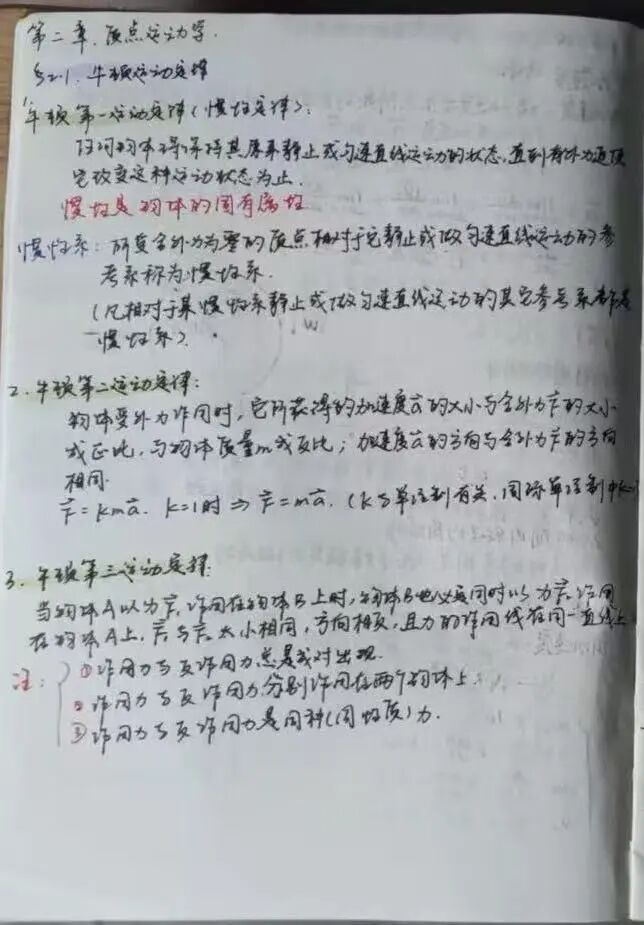 第二章.质点运动学.
§2-1.牛顿运动定律
1.牛顿第一运动定律(惯性定律):
任何物体都保持其原来静止或匀速直线运动的状态,直到有外力迫使
它改变这种运动状态为止.
惯性是物体的固有属性
惯性系:所受合外力为零的质点相对于它静止或做匀速直线运动的参
考系称为惯性系.
(凡相对于某惯性系静止或做匀速直线运动的其它参考系都是
惯性系).
2.牛顿第二运动定律:
物体受外力作用时,它所获得的加速度a⃗的大小与合外力F⃗的大小
成正比,与物体质量m成反比;加速度a⃗的方向与合外力F⃗的方向
相同.
F⃗=kma⃗. k=1时⇒F⃗=ma⃗.(k与单位制有关,国际单位制中k=1)
3.牛顿第三运动定律.
当物体A以力F⃗₁作用在物体B上时,物体B也必定同时以力F⃗₂作用
在物体A上,F⃗₁与F⃗₂大小相同,方向相反,且力的作用线在同一直线上
注:①作用力与反作用力总是成对出现.
②作用力与反作用力分别作用在两个物体上.
③作用力与反作用力是同种(同性质)力.